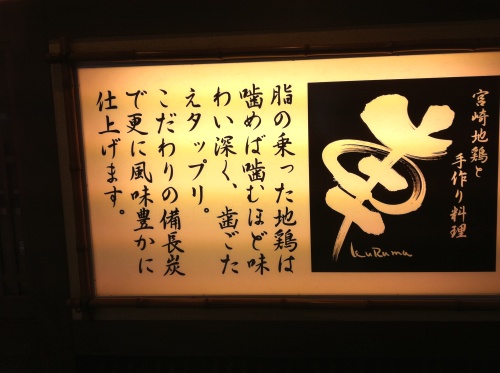 宮崎地鶏と
手作り料理
車
KuRuma
脂の乗った地鶏は
噛めば噛むほど味
わい深く、歯ごた
えタップリ。
こだわりの備長炭
で更に風味豊かに
仕上げます。